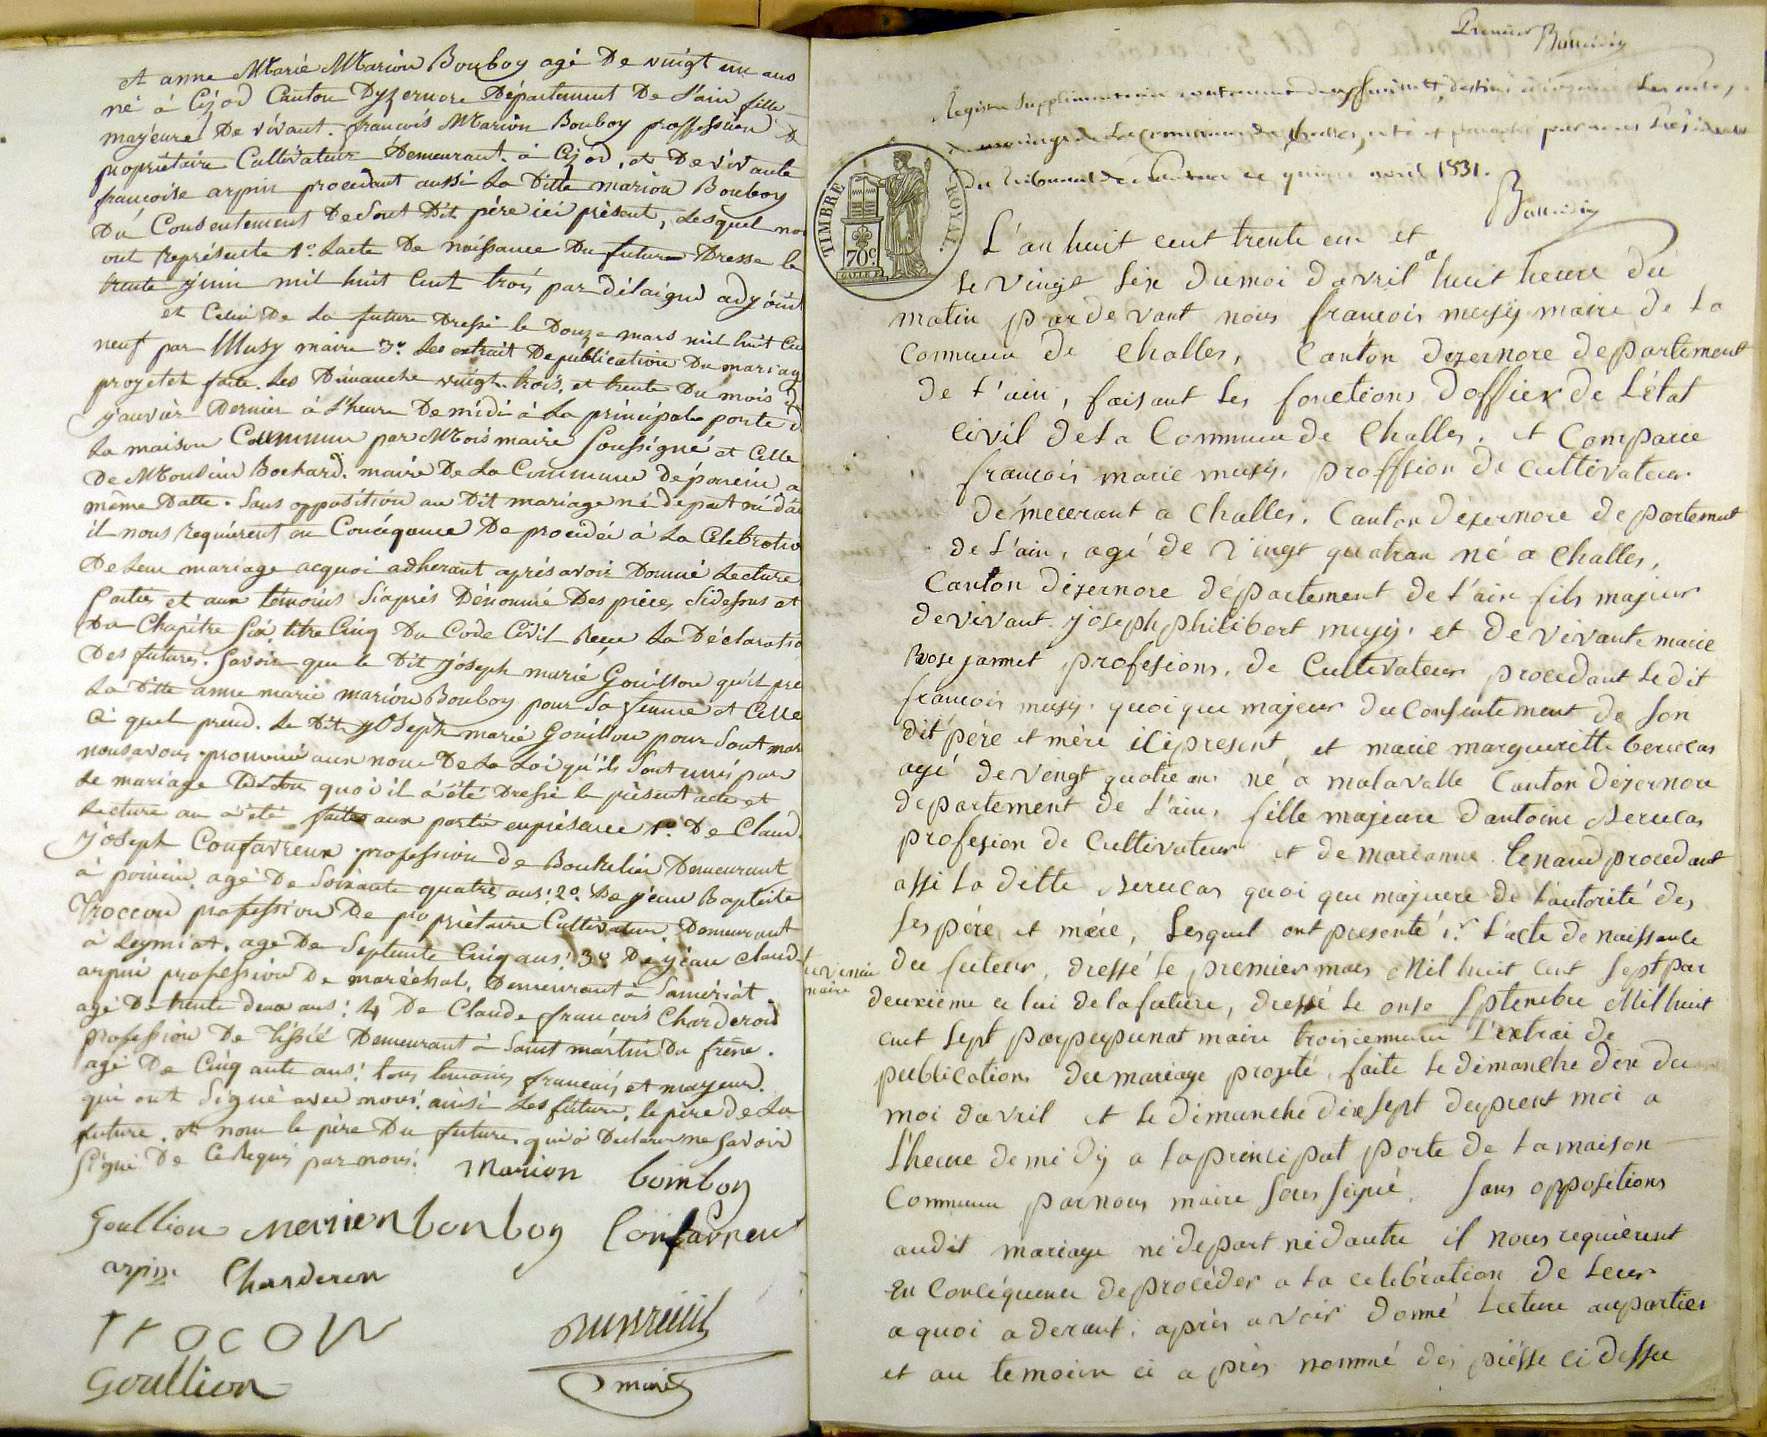 et anne Marie Marion Bouboy agé De vingt un ans
né à Cijod Canton Dyzernore Département De L'ain fille
majeure De vivant. francois Marion Bouboy proffession D
propriétaire Cultivateur Demeurant. à Cijod, et De vivante
francoise arpin procedant aussi La Ditte marion Bouboy
Du Consentement De Sont Dit père ici présent, Lesquel no
ont Représenté 1.o Lacte De naissance Du futur Dressé le
trente juin mil huit Cent trois par délaigue adjoint
et Celui De La future Dressé le Douze mars mil huit Cen
neuf par Musy maire 3.o Les extrait De publication Du mariag
projetet faite. Les Dimanche vingt trois. et trente Du mois d
janvier Dernier à L'heure De midi à La principale porte d
La maison Commune par Mois maire Soussigné et Celle
De Monsieur Bochard. maire De La Commune de poncin a
même Datte. Sans opposition au Dit mariage ni de part ni d'au
il nous Requièrent en Concéqance De procédéi à La Célébratio
De Leur mariage acquoi adherant après avoir Donné Lecture
Partis et aux témoins Siaprés Dénommé Des pièces Sidessus et
Du Chapitre Six, titre Cinq Du Code Civil Reçu La Déclaratio
Des futures. Savoir que le Dit Joseph marie Gouillon qu'il pre
La Ditte anne marie marion Bouboy pour Sa femme et Celle
Ci quel prend. Le Dit yoseph marie Gouillon pour Sont mar
nous avons prononcé aux nom De La Loi qu'ils Sont unis par
Le mariage De tout quoi il a été Dressé le présent acte et
Lecture an a été faite aux partie enprésence 1.o De Claud.
Joseph Confavreux profession de Boutelier Demeurant
à poncin. agé De Soixante quatre ans. 2.o De jean Baptiste
Troccon profession De propriétaire Cultivateur Demeurant
à Leymiat. agé De Septente Cinq ans. 3.o De jean Claud
arpin profession De maréchal, Demeurant à Samériat
agé De trente Deux ans. 4 De Claude francois Charderon
Profession De Tissié Demeurant à Saint martin Du frêne.
agé De Cinqante ans. tous temoins francais et majeur.
qui ont Signé avec nous. ainsi Les future, le père de La
future. et nom le père Du future qui a Declaré ne Savoir
Signé De Ce Requis par nous.
Marion bomboy
Goullion Marion bonboy Confavreux
arpin Charderon
trocon
Goullion
maire
Premier
Registre Supplémentaire contenant destiné à inscrire Les actes
de mariage de La Commune de Challes, coté et paraphé par nous Président
du Tribunal de Nantua ce quinze avril 1831.
TIMBRE ROYAL
70c
L'an huit cent trente un et
le vingt six du moi davril a huit heure du
matin par de vant nous francois musy maire de La
Commune de Challes, Canton dezernore departement
de L'ain, faisant Les fonctions d'offier de L'état
civil de La Commune de Challes. et Comparie
francois marie musy, proffsion de Cultivateur
démeurant a Challes. Canton dézernore departement
de L'ain, agé de vingt quatran né a Challes,
Canton dézernore département de L'ain fils majeur
de vivant. joseph philibert musy. et de vivante marie
Rose jannet profesions. de Cultivateur procedant Ledit
francois musy. quoi que majeur du Consentement de Son
dit père et mère ici present, et marie margueritte berucas
agé de vingt quatre an né a malavalle Canton dezernore
departement de L'ain, fille majeure dantoine Berucas
profesion de Cultivateur et de marianne tenand procedant
assi La ditte Berucas quoi que majuere de Lautorité des
Ses père et mère, Lesquel ont presenté 1.r L'acte de naissance
du futeur, dressé Le premier mars Mil huit cent Sept par
maire
deuxième ce lui de la future, dressé Le onse Sptembre Mil huit
cent Sept par pupunat maire troisiemme L'extrai de
publication du mariage projeté, faite Le dimanche dix du
moi davril et Le dimanche dix Sept du present moi a
L'heure de mi dy a La principal porte de La maison
Commune par nous maire Sous Signé. Sans oppositions
au dit mariage ni de part ni dautre il nous requièrent
En Concéquence de procéder a La celebration de Leur
a quoi aderant. aprés avoir donné Lecture au parties
et au temoin ci a près nommé des piésse ci dessu